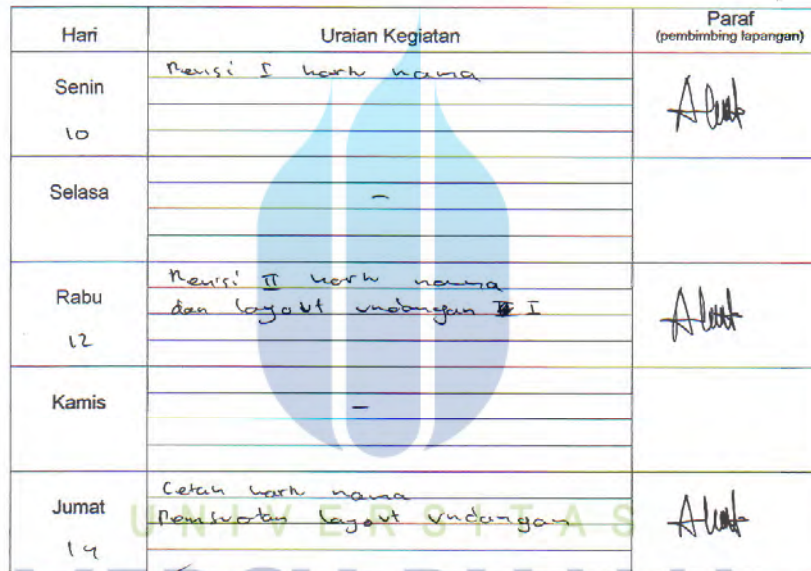 Hari Uraian Kegiatan Paraf
(pembimbing lapangan)
Senin
Revisi I kartu nama
10
Selasa
-
Rabu
Revisi II kartu nama
dan layout undangan I
12
Kamis
-
Jumat
Cetak kartu nama
Pembuatan layout undangan
14
UNIVERSITAS